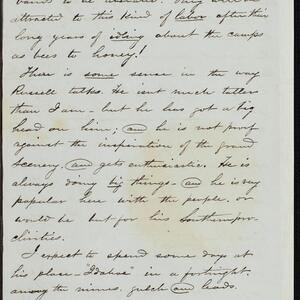 attracted to this kind of labor after their
long years of idling about the camps
as bees to honey!
There is some sense in the way
Russell talks. He isn't much taller
than I am - but he has got a big
head on him; and he is not proof
against the inspiration of the grand
scenery, and gets enthusiastic. He is
always doing big things - and he is very
popular here with the people, or
would be but for his Southern pro-
clivities.
I expect to spend some days at
his place - "Idaho" in a fortnight,
among the mines, gulch and leads.